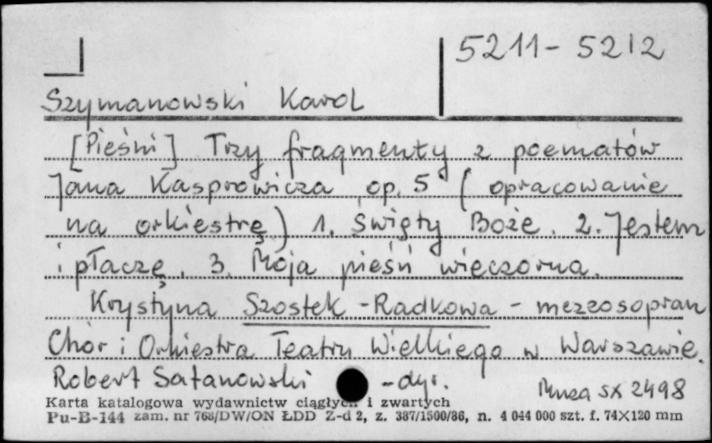 5211-5212
Szymanowski Karol
[Pieśni] Trzy fragmenty z poematów
Jana Kasprowicza op. 5 (opracowanie
na orkiestrę) 1. Święty Boże. 2. Jestem
i płaczę. 3. Moja pieśń wieczorna.
Krystyna Szostek-Radkowa - mezzosopran
Chór i Orkiestra Teatru Wielkiego w Warszawie.
Robert Satanowski - dyr.
Muza SX 2498
Karta katalogowa wydawnictw ciągłych i zwartych
Pu-B-144 zam. nr 768/DW/ON ŁDD Z-d 2, z. 387/1500/86, n. 4 044 000 szt. f. 74X120 mm